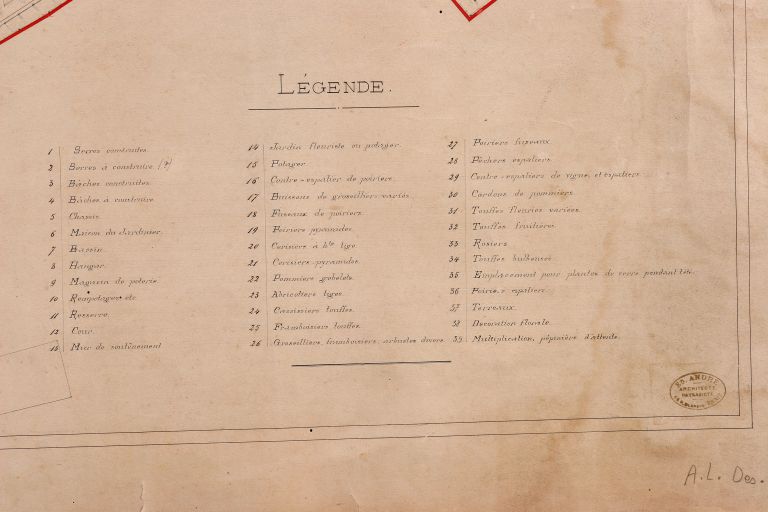 LÉGENDE.
1 Serres construites.
2 Serres à construire (?)
3 Bâches construites.
4 Bâches à construire
5 Chassis.
6 Maison du Jardinier.
7 Bassin.
8 Hangar.
9 Magasin de poterie.
10 Rempotages etc.
11 Resserre.
12 Cour.
13 Mur de soutènement
14 Jardin fleuriste ou potager.
15 Potager.
16 Contre-espalier de poiriers.
17 Buissons de groseilliers variés.
18 Fuseaux de poiriers.
19 Poiriers pyramides.
20 Cerisiers à hte tige.
21 Cerisiers pyramides.
22 Pommiers gobelets.
23 Abricotiers tiges.
24 Cassissiers touffes.
25 Framboisiers touffes.
26 Groseilliers, framboisiers, arbustes divers.
27 Poiriers fuseaux.
28 Pêchers espaliers.
29 Contre-espaliers de vigne, et espaliers.
30 Cordons de pommiers.
31 Touffes fleuries variées.
32 Touffes fruitières.
33 Rosiers.
34 Touffes bulbeuses.
35 Emplacement pour plantes de serre pendant l'été.
36 Poiriers espaliers.
37 Terreaux.
38 Décoration florale.
39 Multiplication, pépinière d'attente.
ED. ANDRÉ
ARCHITECTE
PAYSAGISTE
A.L. Des.